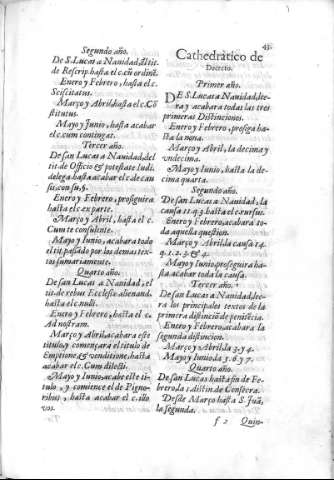 43.
Segundo año.
De S. Lucas a Nauidad, el tit.
de Rescrip. hasta el c. cũ ordinē.
Enero y Febrero, hasta el c.
Sciscitatus.
Março y Abril hasta el c. Cõ
stitutus.
Mayo y Iunio, hasta acabar
el c. cum contingat.
Tercer año.
De san Lucas a Nauidad, del
tit. de Officio & potestate Iudi.
delega hasta acabar el c. de cau
sis, con su, §.
Enero y Febrero, prosiguira
hasta el c. ex parte.
Março y Abril, hasta el c.
Cum te consulente.
Mayo y Iunio, acabara todo
el tit. pasado por los demas tex-
tos sumariamente.
Quarto año.
De san Lucas a Nauidad, el
tit. de rebus Ecclesie alienand.
hasta el c. nulli.
Enero y Febrero, hasta el c.
Ad nostram.
Março y Abril acabara este
titulo, y començara el titulo de
Emptione, & venditione, hasta
acabar el c. Cum dilecti.
Mayo y Iunio, acabe este ti-
tulo, y comience el de Pigno-
ribus, hasta acabar el c. illo
vos.
Cathedratico de
Decreto.
Primer año.
DE S. Lucas a Nauidad, lee-
ra y acabara todas las tres
primeras Distinciones.
Enero y Febrero, prosiga ha-
sta la nona.
Março y Abril, la decima y
vndecima.
Mayo y Iunio, hasta la de-
cima quarta.
Segundo año.
De san Lucas a Nauidad, la
causa 11. q. 3. hasta el c. rursus.
Enero y Febrero, acabara to-
da aquella question.
Março y Abril da causa 14.
q. 1. 2. 3. & 4.
Mayo y Iunio, proseguira ha-
sta acabar toda la causa.
Tercer año.
De san Lucas a Nauidad, lee-
ra los principales textos de la
primera distinciõ de penitẽcia.
Enero y Febrero, acabara la
segunda distincion.
Março y Abril da 3. y 4.
Mayo y Iunio da 5. 6. y 7.
Quarto año.
De san Lucas hasta fin de Fe-
brero la 1. distin. de Consecra.
Desde Março hasta S. Juã,
la segunda.
f 2 Quin-